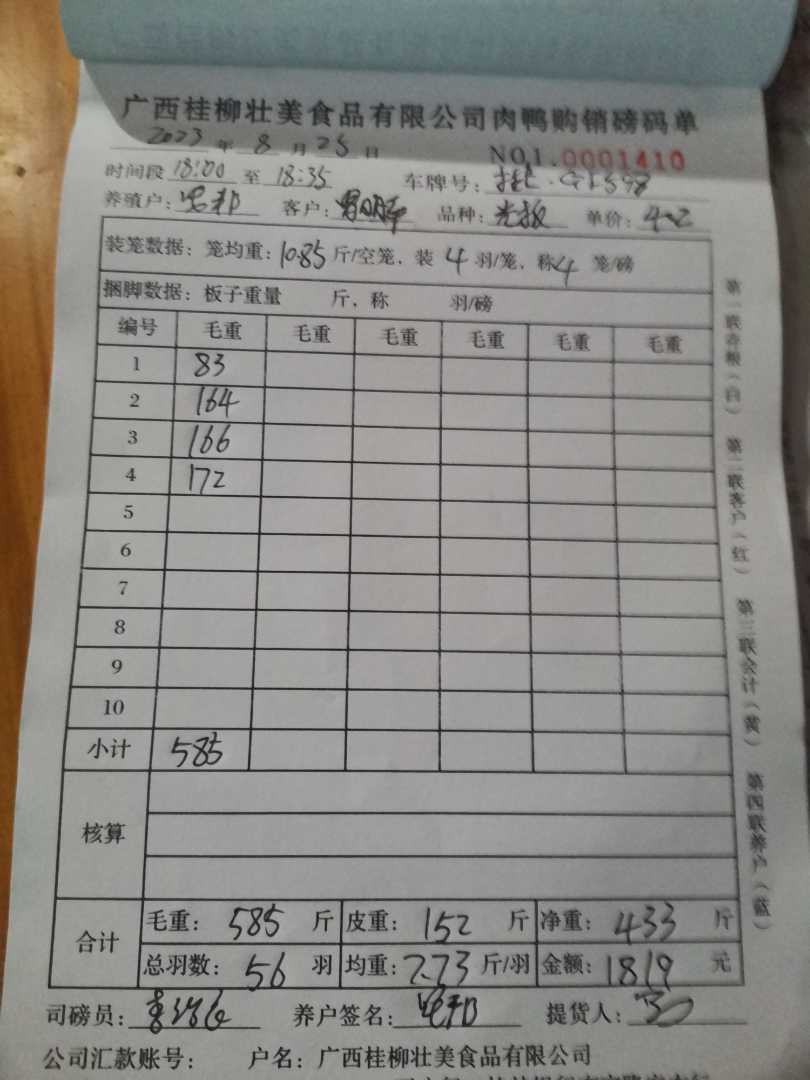 广西桂柳壮美食品有限公司肉鸭购销磅码单
2023 年 8 月 25 日 NO1.0001410
时间段 18:00 至 18:35 车牌号:
养殖户: 客户: 品种: 光板 单价: 4.2
装笼数据: 笼均重: 10.85 斤/空笼、装 4 羽/笼、称 4 笼/磅
捆脚数据: 板子重量 斤、称 羽/磅
编号 毛重 毛重 毛重 毛重 毛重 毛重
1 83
2 164
3 166
4 172
5
6
7
8
9
10
小计 585
核算
合计 毛重: 585 斤 皮重: 152 斤 净重: 433 斤
总羽数: 56 羽 均重: 7.73 斤/羽 金额: 1819 元
司磅员: 养户签名: 提货人:
公司汇款账号: 户名: 广西桂柳壮美食品有限公司
第一联存根(白) 第二联客户(红) 第三联会计(黄) 第四联养户(蓝)